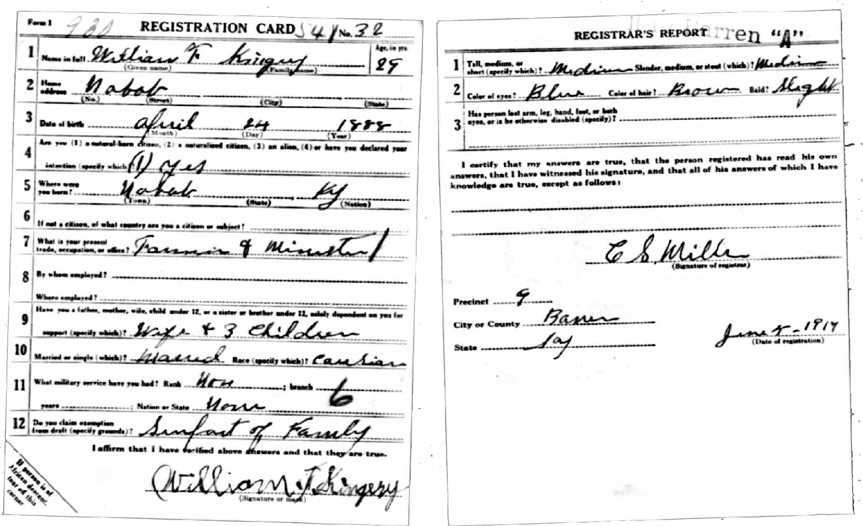 Form 1 REGISTRATION CARD 541 No. 32
1 Name in full William F Kingery Age, in yrs. 29
(Given name) (Family name)
2 Home address Nobob
(No.) (Street) (City) (State)
3 Date of birth April 24 1888
(Month) (Day) (Year)
4 Are you (1) a natural-born citizen, (2) a naturalized citizen, (3) an alien, (4) or have you declared your
intention (specify which)? (1) yes
5 Where were you born? Nobob Ky
(Town) (State) (Nation)
6 If not a citizen, of what country are you a citizen or subject?
7 What is your present trade, occupation, or office? Farmer & Minister
8 By whom employed?
Where employed?
9 Have you a father, mother, wife, child under 12, or a sister or brother under 12, solely dependent on you for
support (specify which)? Wife & 3 Children
10 Married or single (which)? Married Race (specify which)? Caucasian
11 What military service have you had? Rank None ; branch 6
years ; Nation or State None
12 Do you claim exemption from draft (specify grounds)? Support of Family
I affirm that I have verified above answers and that they are true.
William F Kingery
(Signature or mark)
If person is of
African descent,
tear off this
corner
REGISTRAR'S REPORT "A"
1 Tall, medium, or short (specify which)? Medium Slender, medium, or stout (which)? Medium
2 Color of eyes? Blue Color of hair? Brown Bald? Slight
3 Has person lost arm, leg, hand, foot, or both eyes, or is he otherwise disabled (specify)?
I certify that my answers are true, that the person registered has read his own
answers, that I have witnessed his signature, and that all of his answers of which I have
knowledge are true, except as follows:
C S Miller
(Signature of registrar)
Precinct 9
City or County Barren
State Ky
June 5-1917
(Date of registration)